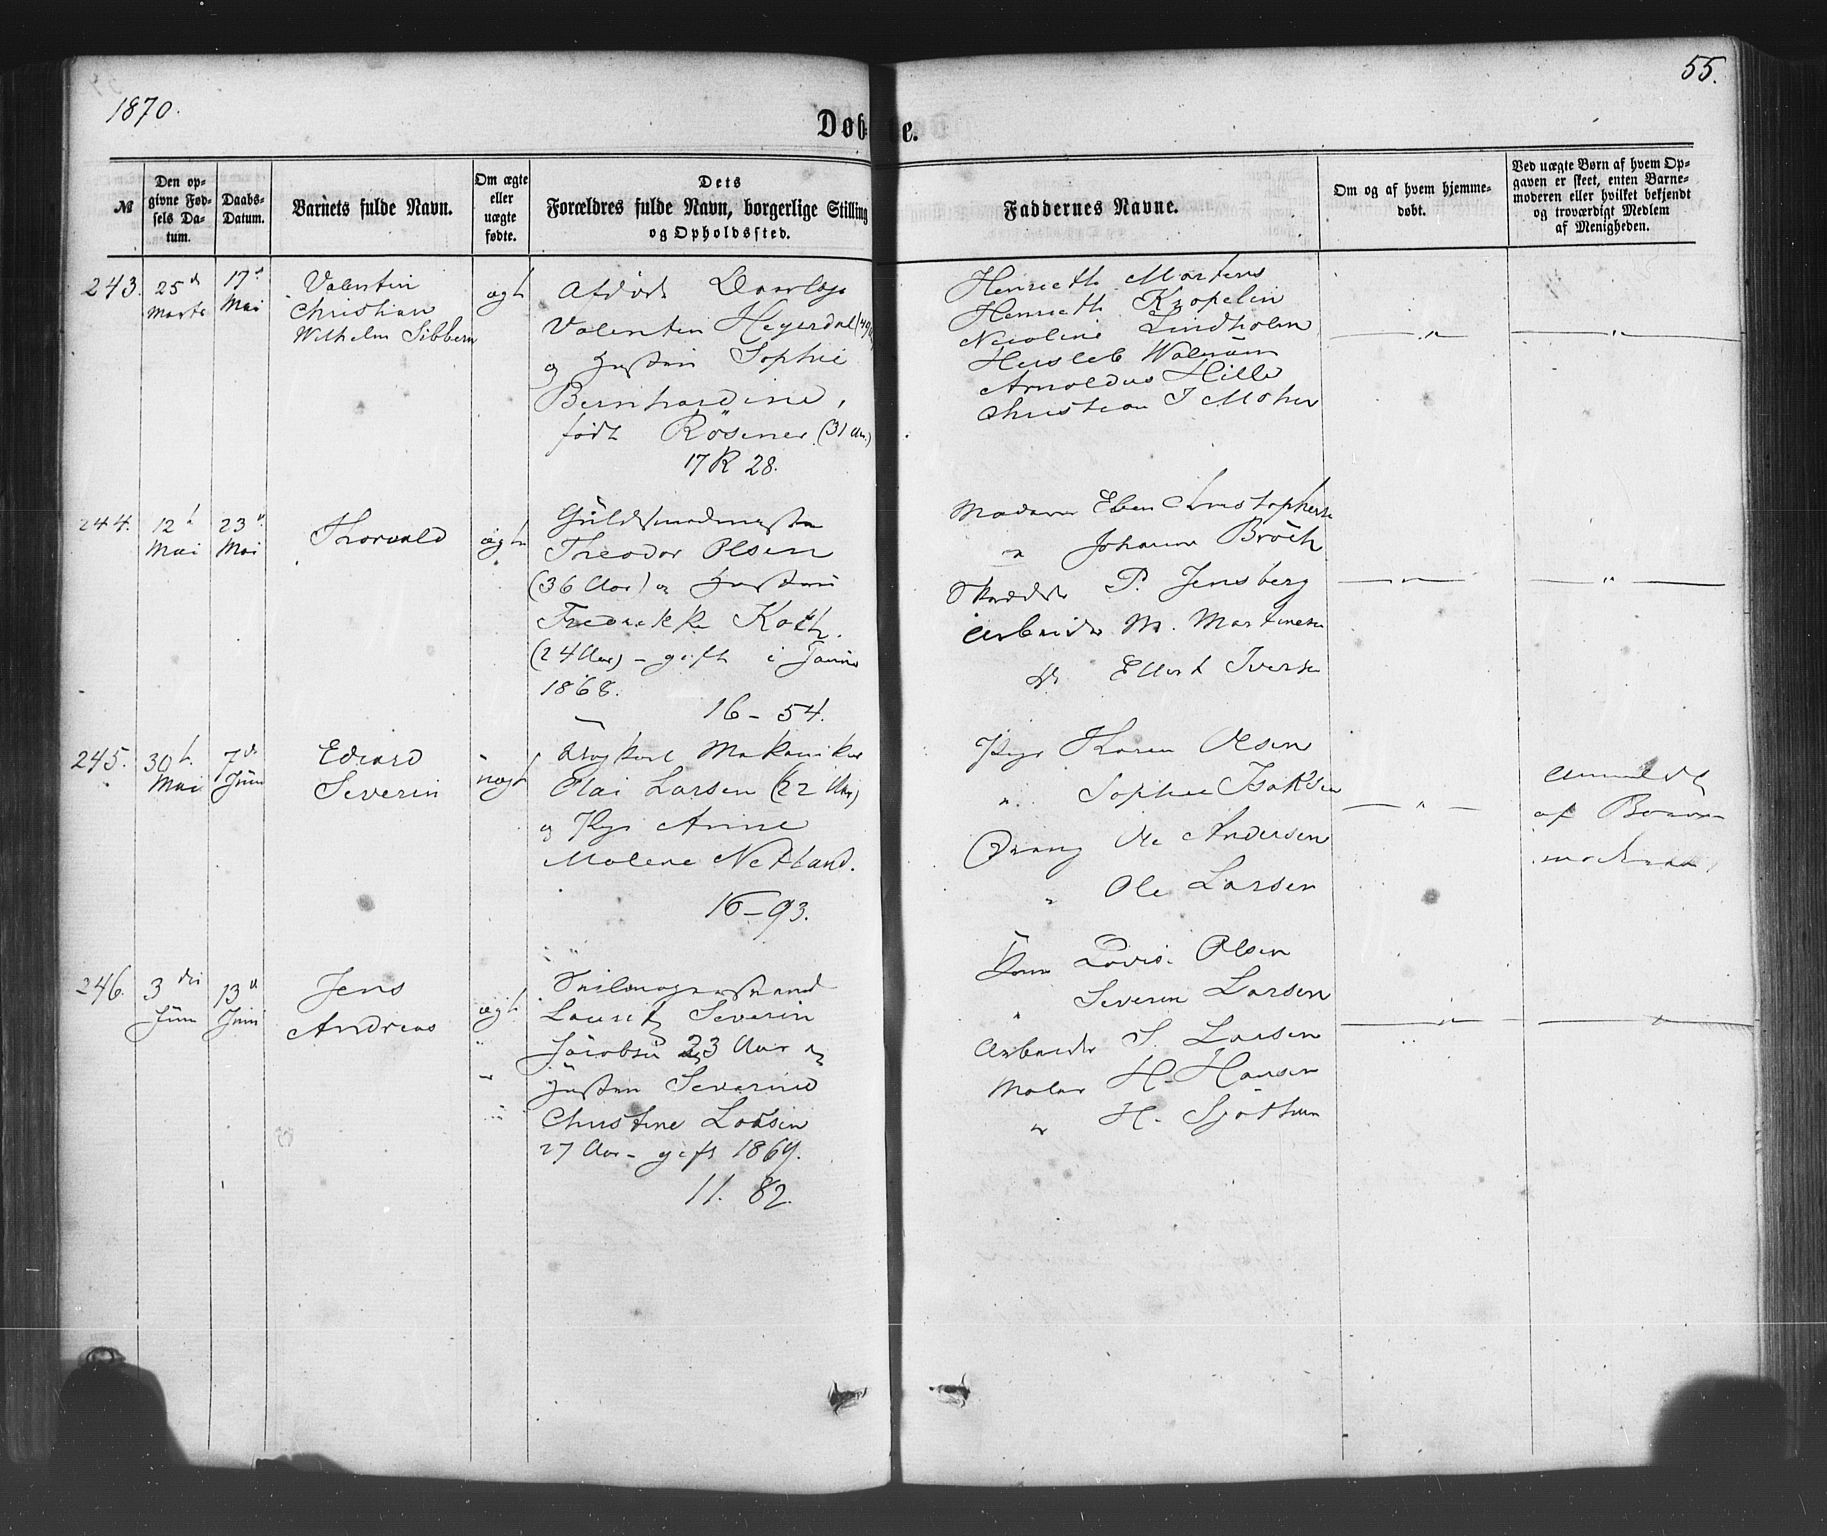 1870.
55.
Døbte.
№
Den opgivne Fødsels Datum.
Daabs-Datum.
Barnets fulde Navn.
Om ægte eller uægte fødte.
Dets Forældres fulde Navn, borgerlige Stilling og Opholdssted.
Faddernes Navne.
Om og af hvem hjemmedøbt.
Ved uægte Børn af hvem Opgaven er skeet, enten Barnemoderen eller hvilket bekjendt og troværdigt Medlem af Menigheden.
243.
25de Marts
17de Mai
Valentin
Christian
Wilhelm Sibbern
ægt
Afdøde
Valentin Heyerdal
og Hustru Sophie
Bernhardine,
født Rösener (31 Aar)
17 R 28.
Henrieth Mortens
Henrieth Kröpelin
Nicoline Lindholm
Hersleb Walnum
Arnoldus Hille
Christian I Mohr
244.
12te Mai
23de Mai
Thorvald
ægte
Guldsmedmester
Theodor Olsen
(36 Aar) og Hustru
Fredrikke Koch.
(24 Aar) - gift i
1868.
16 - 54.
Madame Christophersen
" Johanne Broch
P. Jensberg
Arbeider M. Martinsen
do Ellert Iversen
245.
30te Mai
7de Juni
Edvard
Severin
uægt
Ungkarl Mekaniker
Olai Larsen (22 Aar)
og Pige Anne
Malene Netland.
16 - 93.
Pige Karen Olsen
" Sophie Isaksen
Dreng Ole Andersen
" Ole Larsen
Anmeldt
af Barne-
moderen.
246.
3die Juni
13de Juni
Jens
Andreas
ægt
Lauritz Severin
Jacobsen 23 Aar og
Hustru Severine
Christine Larsen
27 Aar - gift 1869.
11. 82.
Kone Lovise Olsen
" Severin Larsen
Arbeider S. Larsen
Maler H. Hansen
" H. Sjøthun